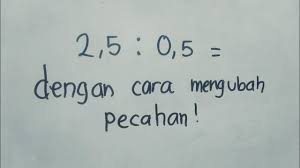 2,5 : 0,5 =
dengan cara mengubah
pecahan!